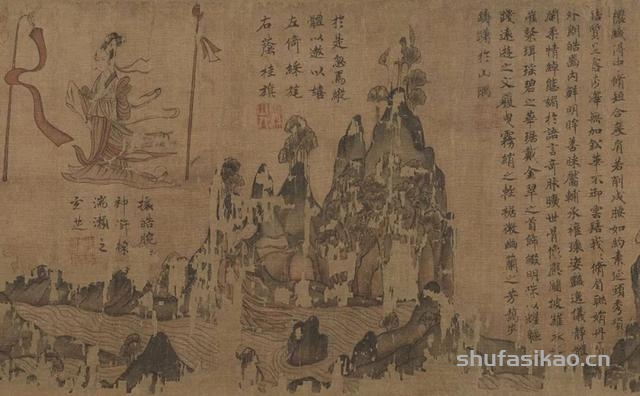 襛纖得中脩短合度肩若削成腰如約素延頸秀項
皓質呈露芳澤無加鉛華不御雲髻峨峨脩眉聯娟丹唇
外朗皓齒內鮮明眸善睞靨輔承權瓌姿豔逸儀靜體
閑柔情綽態媚於語言奇服曠世骨像應圖披羅衣之
璀粲珥瑤碧之華琚戴金翠之首飾綴明珠以耀軀
踐遠遊之文履曳霧綃之輕裾微幽蘭之芳藹步
踟躕於山隅
於是忽焉縱
體以遨以嬉
左倚綵旄
右蔭桂旗
攘皓腕於
神滸採
湍瀨之
玄芝
shufasikao.cn